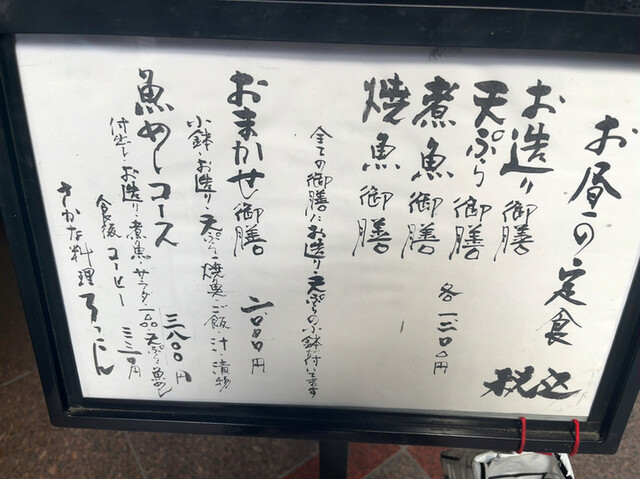 お昼の定食
税込
お造り御膳
天ぷら御膳
煮魚御膳
焼魚御膳
各一二〇〇円
全ての御膳にお造り・天ぷらの小鉢が付いてます
おまかせ御膳 二〇〇〇円
小鉢・お造り・天ぷら・焼魚・ご飯・汁・漬物
魚めしコース 三八〇〇円
付出し・お造り・煮魚・サラダ・一品・天ぷら・魚めし
食後 コーヒー 三三〇円
さかな料理